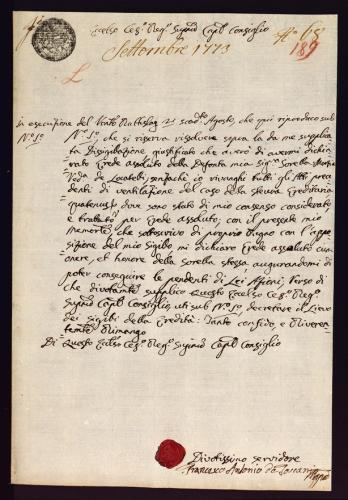 Excelso Ces.º Reg.º Suprmō Captō Consiglio
Settembre 1773
189
In esecuzione del Vento 21 scad.to Agosto, che qui riproduco sub
N.º 1.º N.º 1.º che si riserva risolvere sopra la da me supplica
ta Dissigillazione, giustificato che averò di avermi dichia
rato Erede assoluto della Defonta mia Sig.ra Sorella
Ved.a de Locatelli, senzachè io rivanghi tutti gli Atti prece
denti di ventilazione del caso della stessa Ereditaria
quatenus dove sono stato di mio consenso considerato
e trattato per Erede assoluto; con il presente mio
Memorte, che sottoscrivo di proprio pugno con l'appo
sizione del mio Sigillo mi dichiaro Erede assoluto
onere, et honore della Sorella stessa, augurandomi di
poter conseguire le pendenti di Lei Azioni, Verso di
che divotamte supplico Questo Excelso Ces.º Reg.º
Suprmō Captō Consiglio uti sub N.º 1.º decretare il Levo
dei Sigilli della Eredità: Tanto confido, e Riveren
temte Rimango
Di Questo Excelso Ces.º Reg.º Suprmō Captō Consiglio
Divotissimo servidore
Francesco Antonio de